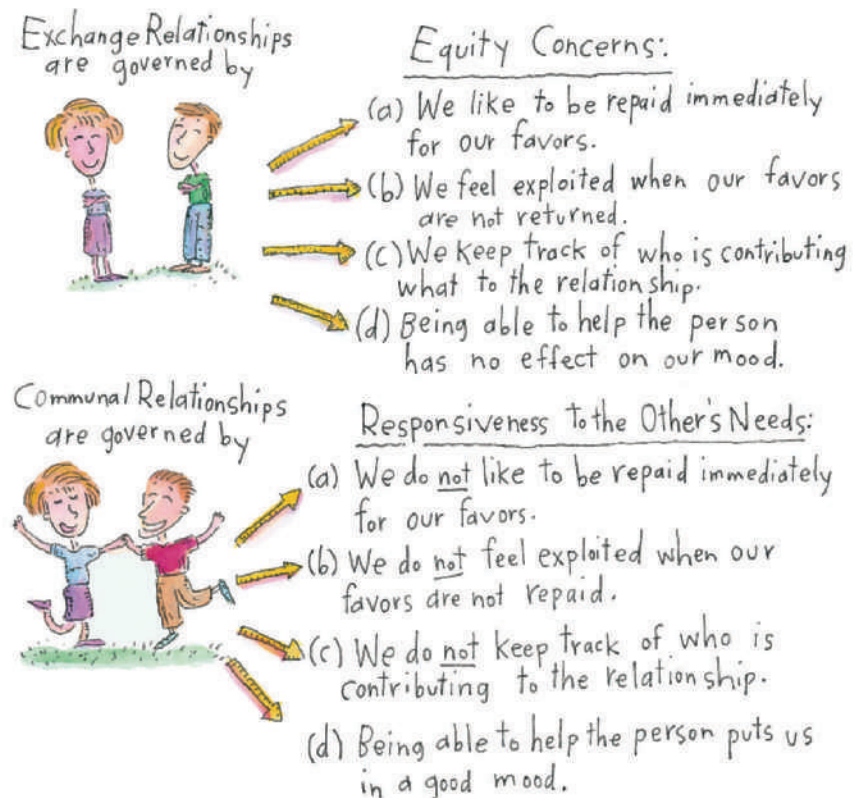 Exchange Relationships
are governed by
Equity Concerns:
(a) We like to be repaid immediately
for our favors.
(b) We feel exploited when our favors
are not returned.
(c) We keep track of who is contributing
what to the relationship.
(d) Being able to help the person
has no effect on our mood.
Communal Relationships
are governed by
Responsiveness to the Other's Needs:
(a) We do not like to be repaid immediately
for our favors.
(b) We do not feel exploited when our
favors are not repaid.
(c) We do not keep track of who is
contributing to the relationship.
(d) Being able to help the person puts us
in a good mood.